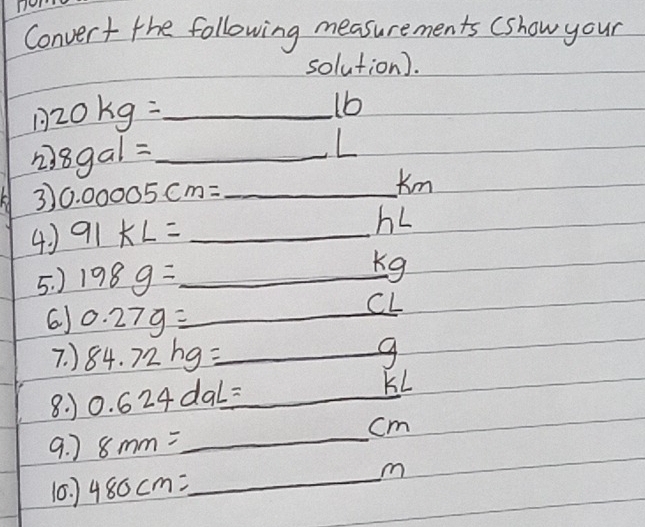 Convert the following measurements (show your
solution).
1.) 20 kg = ________ lb
2.) 8 gal = ________ L
3.) 0.00005 cm = ________ km
4.) 91 kL = ________ hL
5.) 198 g = ________ kg
6.) 0.27g = ________ CL
7.) 84.72 hg = ________ g
8.) 0.624 daL = ________ kL
9.) 8 mm = ________ cm
10.) 480 cm = ________ m